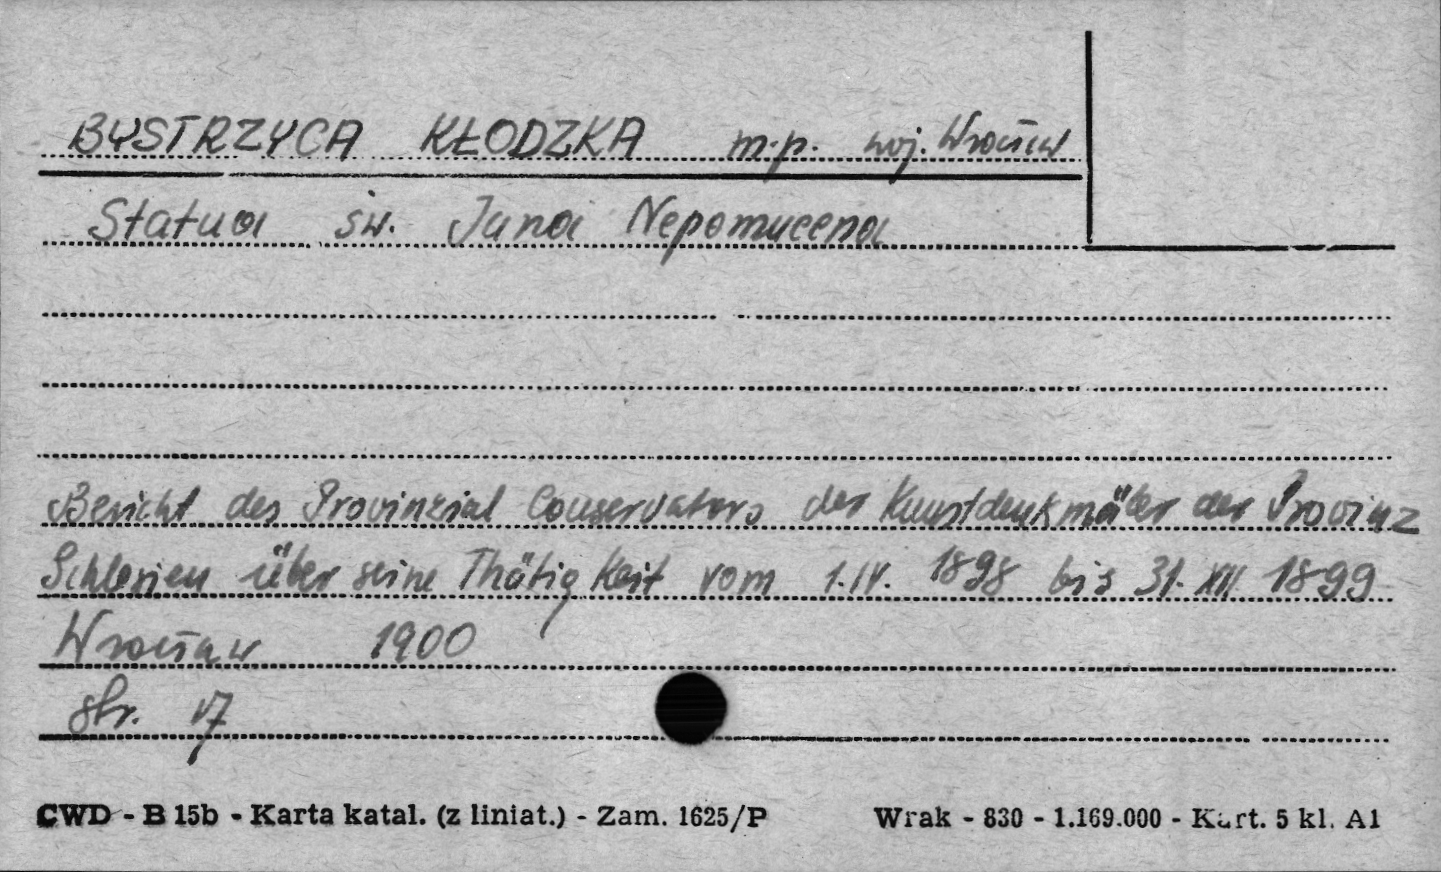 BYSTRZYCA KŁODZKA m.p. woj. Wrocław
Statua św. Jana Nepomucena
Bericht des Provinzial Conservators der Kunstdenkmäler der Provinz
Schlesien über seine Thätigkeit vom 1.IV. 1898 bis 31. XII 1899
Wrocław 1900
str. 17
CWD - B 15b - Karta katal. (z liniat.) - Zam. 1625/P Wrak - 830 - 1.169.000 - Kart. 5 kl. A1